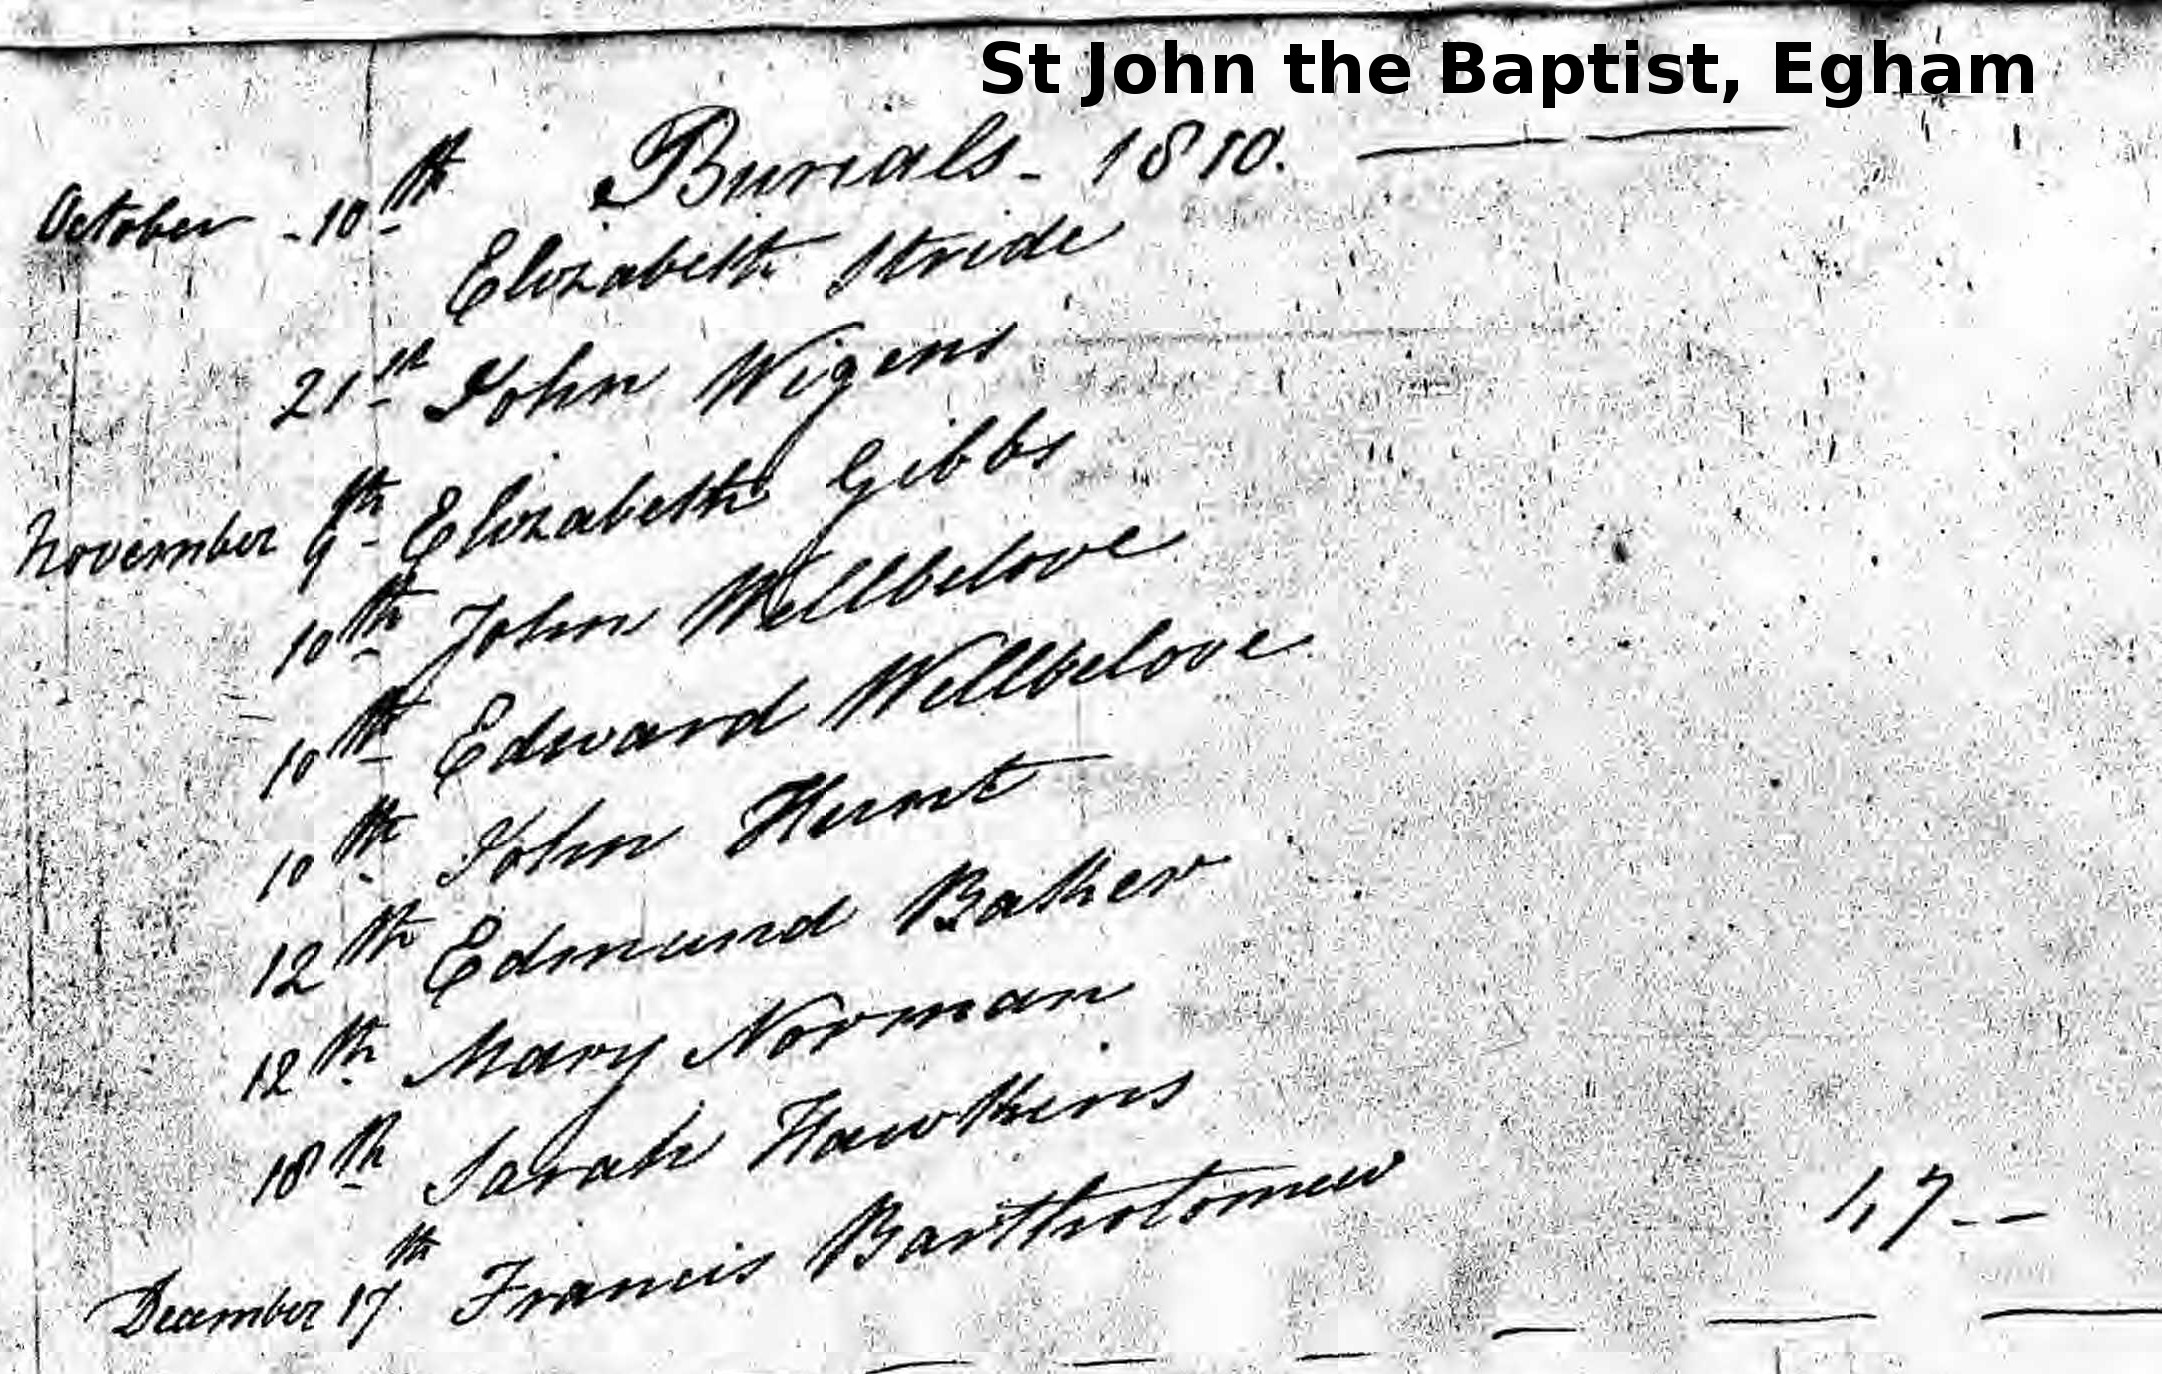 St John the Baptist, Egham
Burials - 1810.
October - 10th
Elizabeth Stride
21st John Wigens
November 9th Elizabeth Gibbs
10th John Wellbelove
10th Edward Wellbelove
10th John Hunt
12th Edmund Baker
12th Mary Norman
18th Sarah Hawkins
December 17th Francis Bartholomew
47--